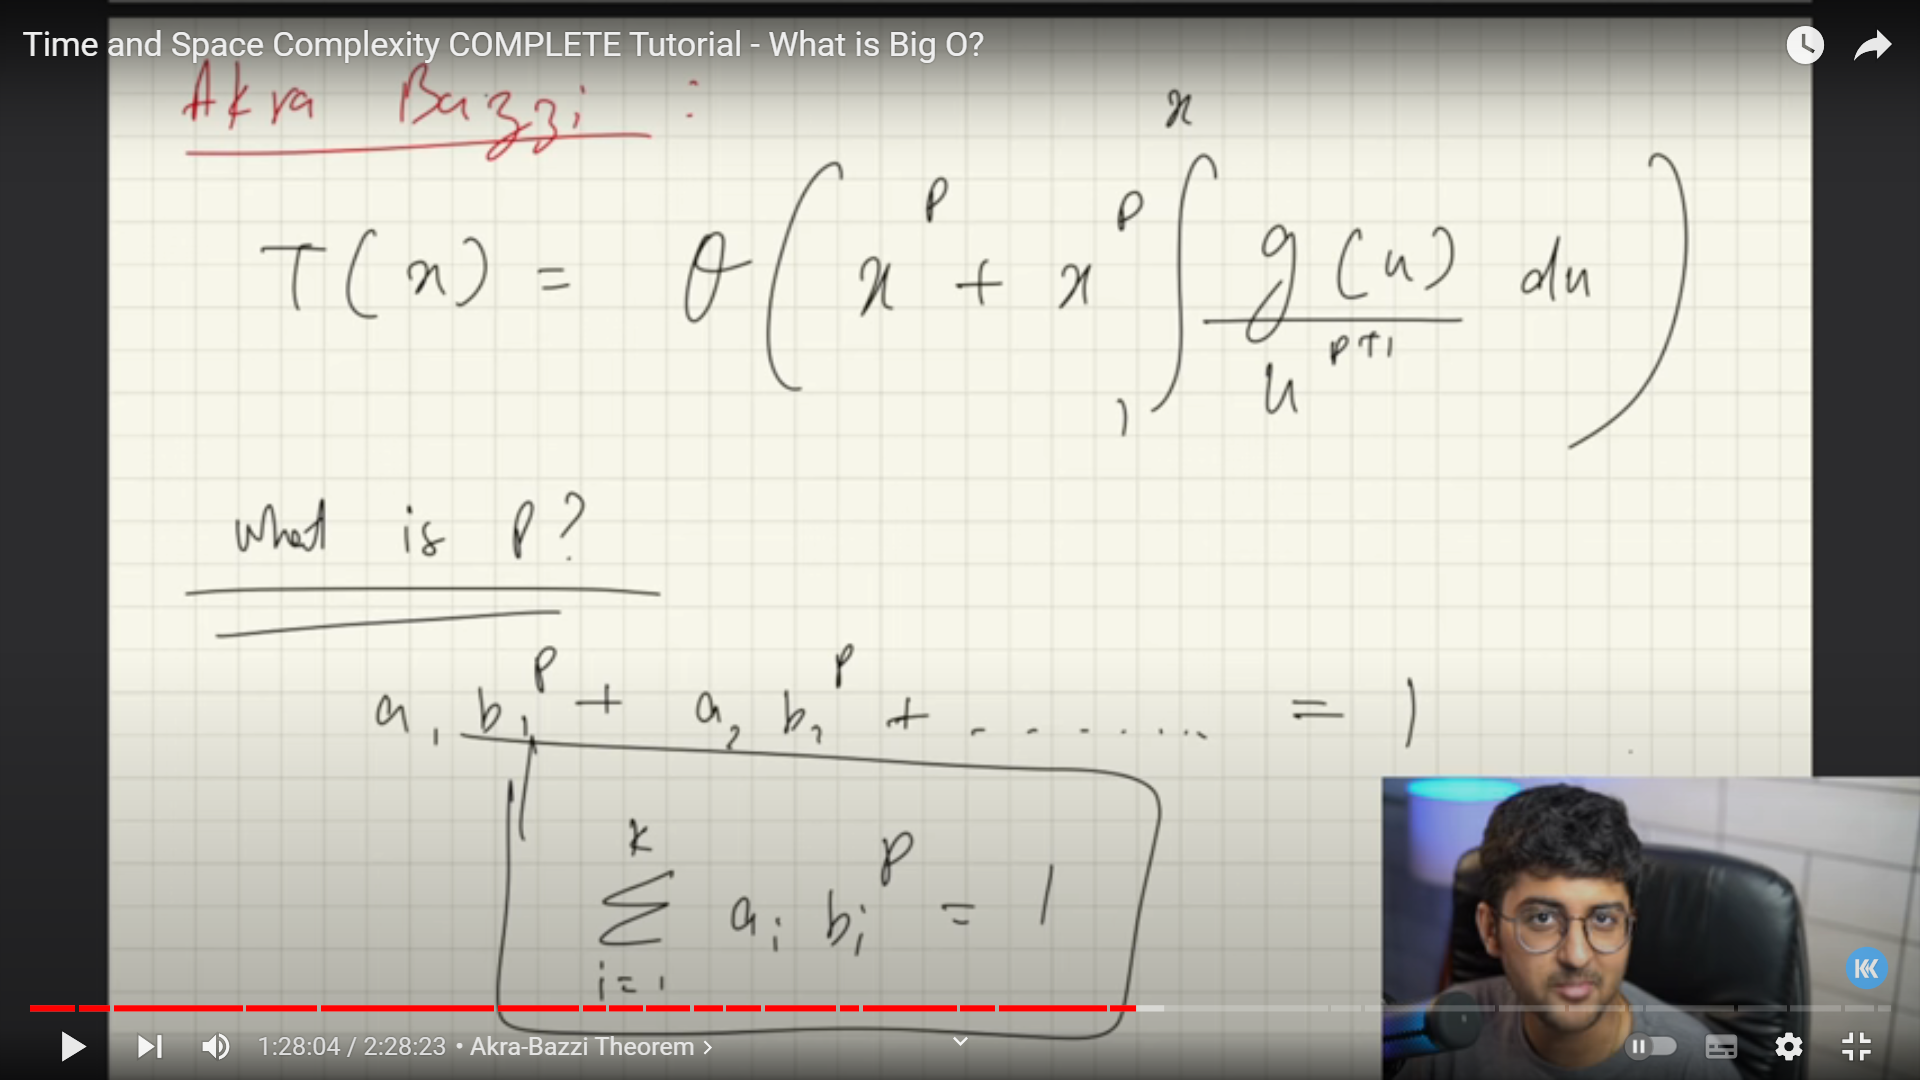 Time and Space Complexity COMPLETE Tutorial - What is Big O?
Akra Bazzi :
T(x) = θ(x^p + x^p ∫₁^x g(u)/u^(p+1) du)
What is P?
a₁ b₁^p + a₂ b₂^p + ........ = 1
∑_{i=1}^{k} aᵢ bᵢ^p = 1
1:28:04 / 2:28:23 • Akra-Bazzi Theorem >